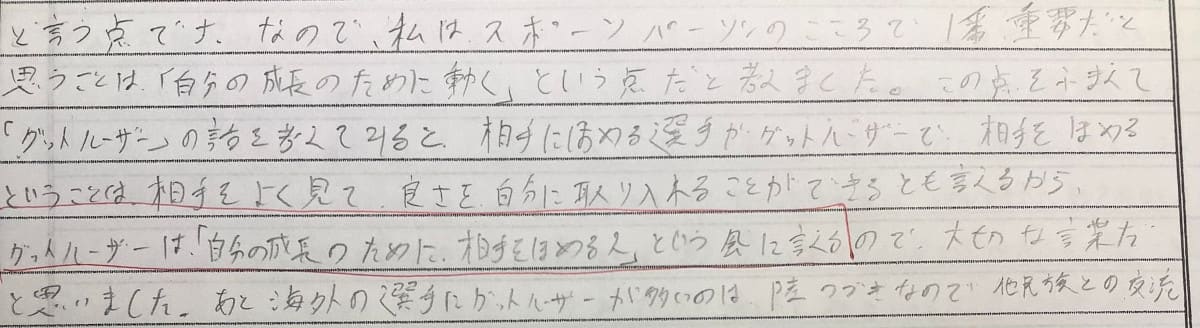 と言う点です。なので、私はスポーツパーソンのこころで1番重要だと
思うことは、「自分の成長のために動く」という点だと考えました。この点をふまえて
「グットルーザー」の話を考えてみると、相手にほめる選手がグットルーザーで、相手をほめる
ということは、相手をよく見て、良さを自分に取り入れることができるとも言えるから、
グットルーザーは、「自分の成長のために、相手をほめる人」という風に言えるので大切な言葉だ
と思いました。あと海外の選手にグットルーザーが多いのは陸つづきなので他民族との交流